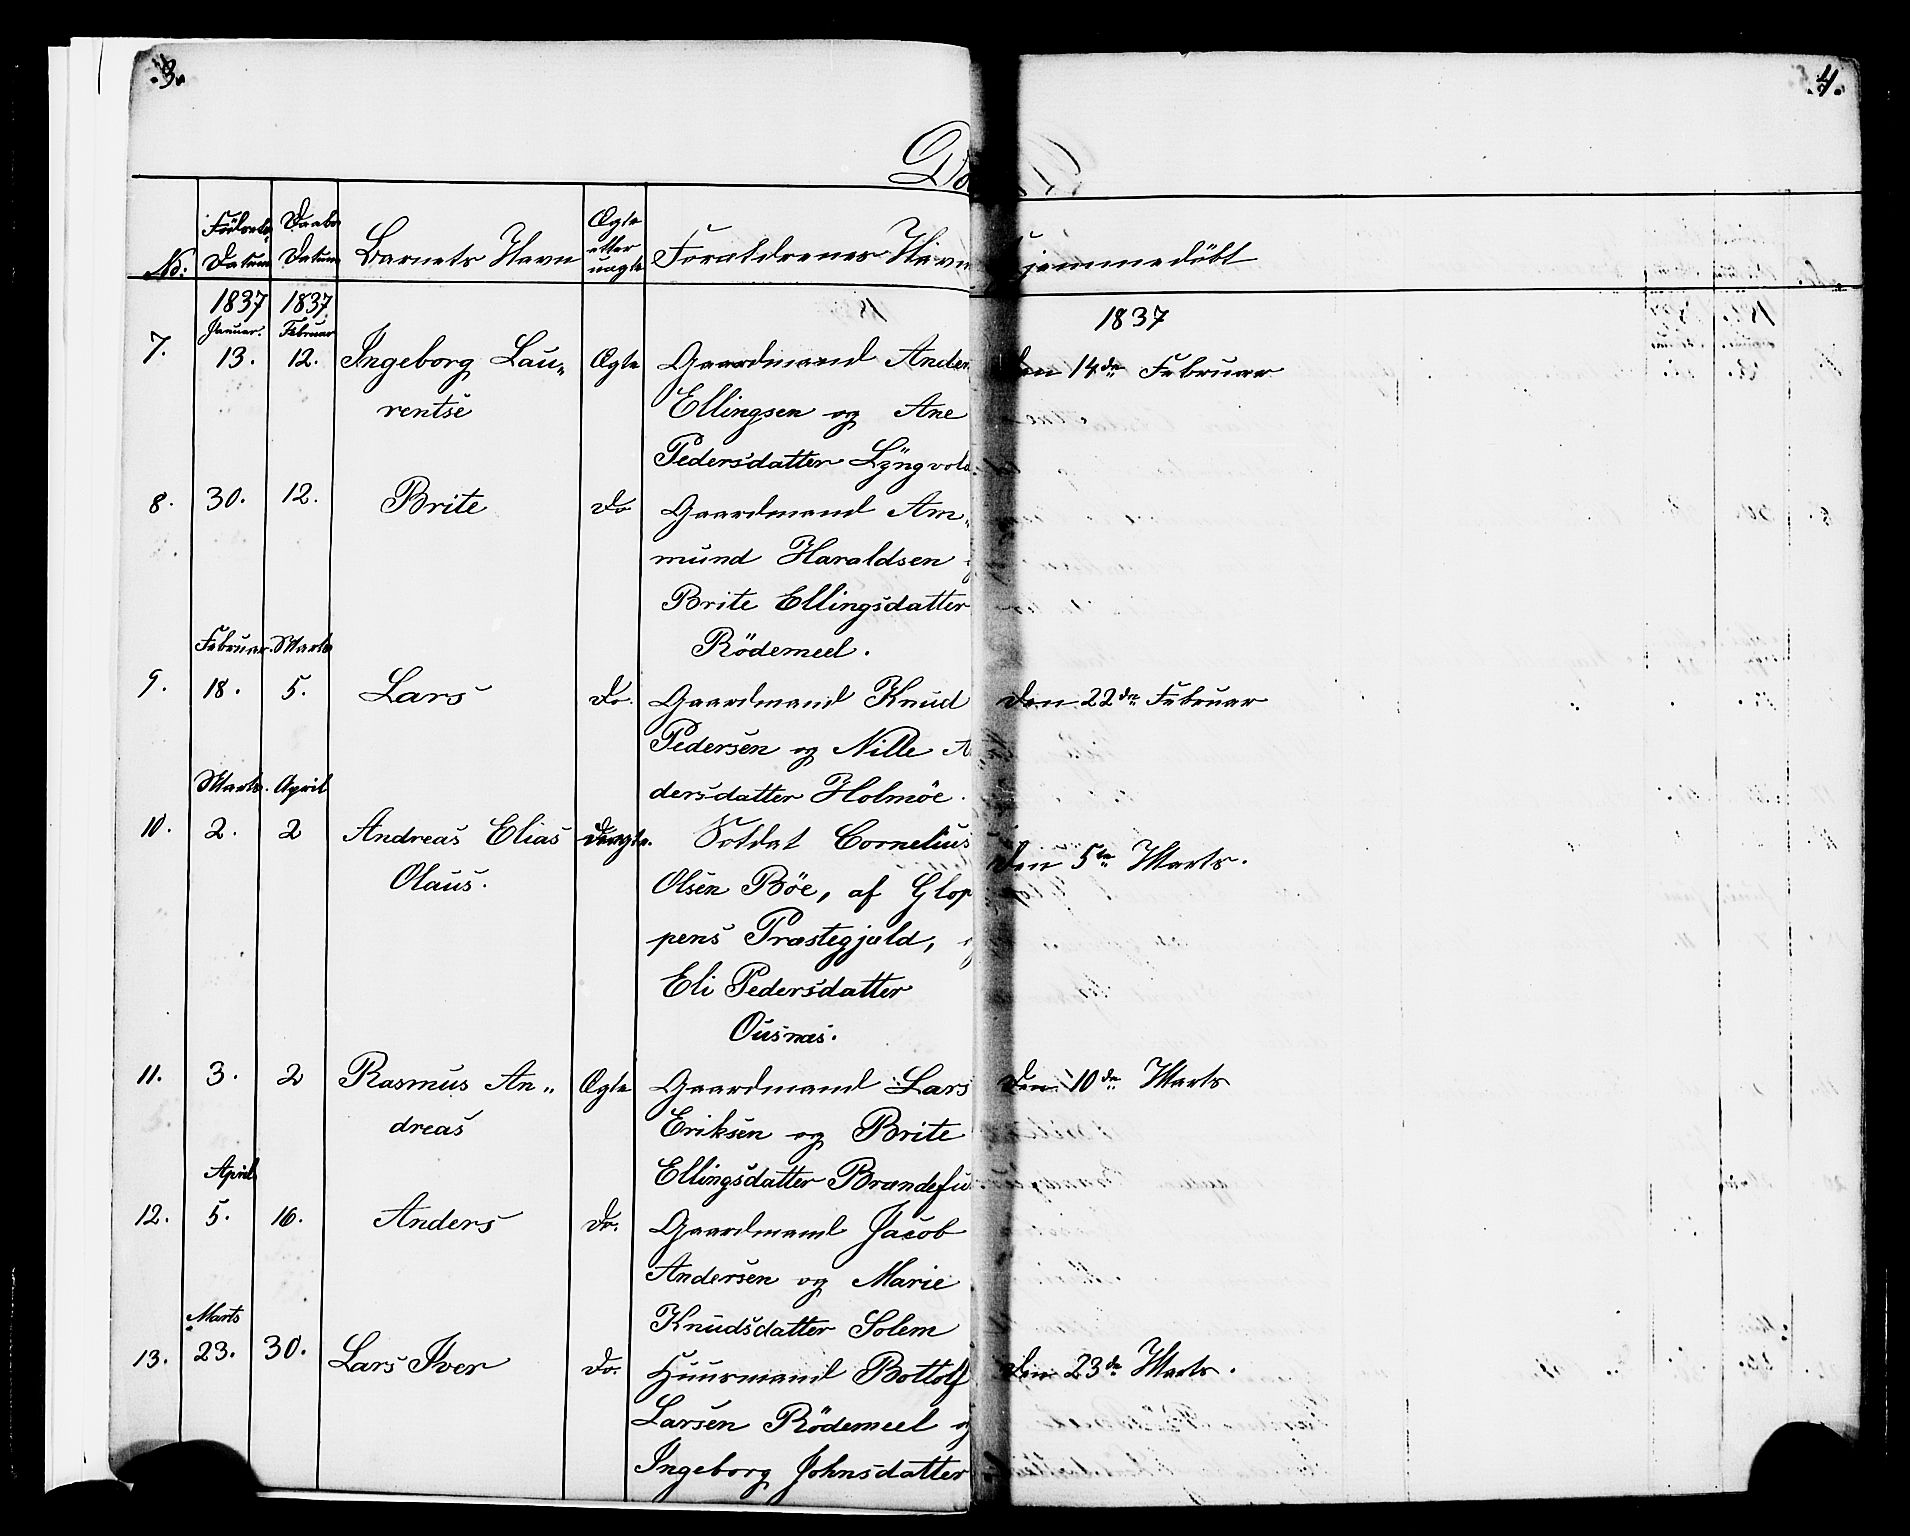 3.
4.
Dö
Fødsels Daabs Ægte
No: Datum Datum Barnets Navn etter uægte Forældrenes Navn Hjemmedöbt
1837 1837 1837
Januar. Februar
7. 13. 12. Ingeborg Lau„ Ægte Gaardmand Ander Den 14de Februar
rentse Ellingsen og Ane
Pedersdatter Lÿngvold.
8. 30. 12. Brite Do Gaardmand Am„
mund Haraldsen
Brite Ellingsdatter
Februar. Marts Rödemeel.
9. 18. 5. Lars Do. Gaardmand Knud Den 22de Februar
Pedersen og Nille A
Marts. April dersdatter Holmöe.
10. 2. 2 Andreas Elias Uægte. Soldat Cornelius Den 5te Marts.
Olaus. Olsen Böe, af Glop
pens Præstegjæld,
Eli Pedersdatter
Ousnæs.
11. 3. 2 Rasmus An„ Ægte Gaardmand Lars Den 10de Marts
dreas Eriksen og Brite
April Ellingsdatter Brandefu
12. 5. 16. Anders Do. Gaardmand Jacob
Andersen og Marie
Marts Knudsdatter Solem
13. 23. 30. Lars Iver Do. Huusmand Bottolf Den 23de Marts.
Larsen Rödemeel og
Ingeborg Johnsdatter